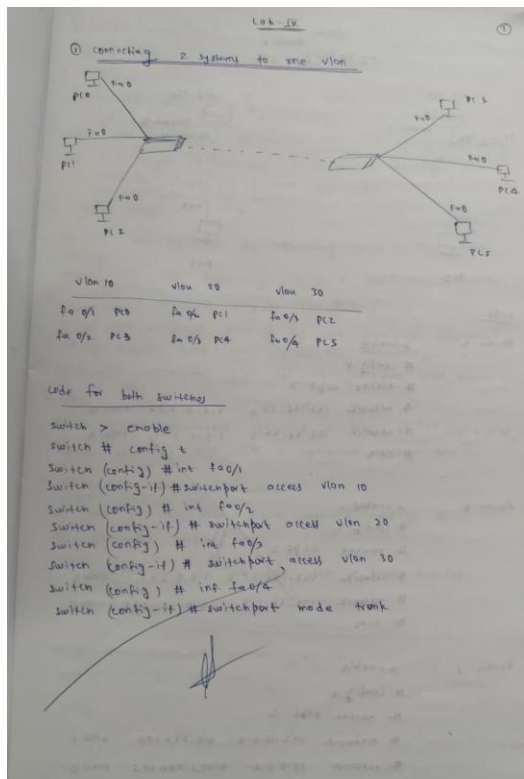 Lab-IV
1
1 connecting 2 systems to one vlan
PC0
Fa0
Fa0
PC1
Fa0
PC2
PC3
Fa0
Fa0
PC4
Fa0
PC5
vlan 10 vlan 20 vlan 30
fa 0/1 PC0 fa 0/2 PC1 fa 0/3 PC2
fa 0/2 PC3 fa 0/3 PC4 fa 0/4 PC5
code for both switches
switch > enable
switch # config t
switch (config) # int fa0/1
switch (config-if) # switchport access vlan 10
switch (config) # int fa0/2
switch (config-if) # switchport access vlan 20
switch (config) # int fa0/3
switch (config-if) # switchport access vlan 30
switch (config) # int fa0/4
switch (config-if) # switchport mode trunk